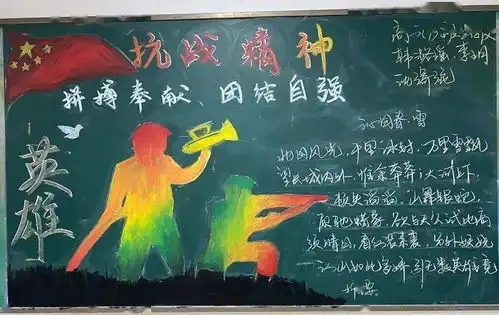 抗战精神
拼搏奉献、团结自强
英雄
沁园春·雪
北国风光,千里冰封,万里雪飘
望长城内外,惟余莽莽;大河上下,
顿失滔滔。山舞银蛇,
原驰蜡象,欲与天公试比高
须晴日,看红装素裹,分外妖娆
江山如此多娇,引无数英雄竞
折腰